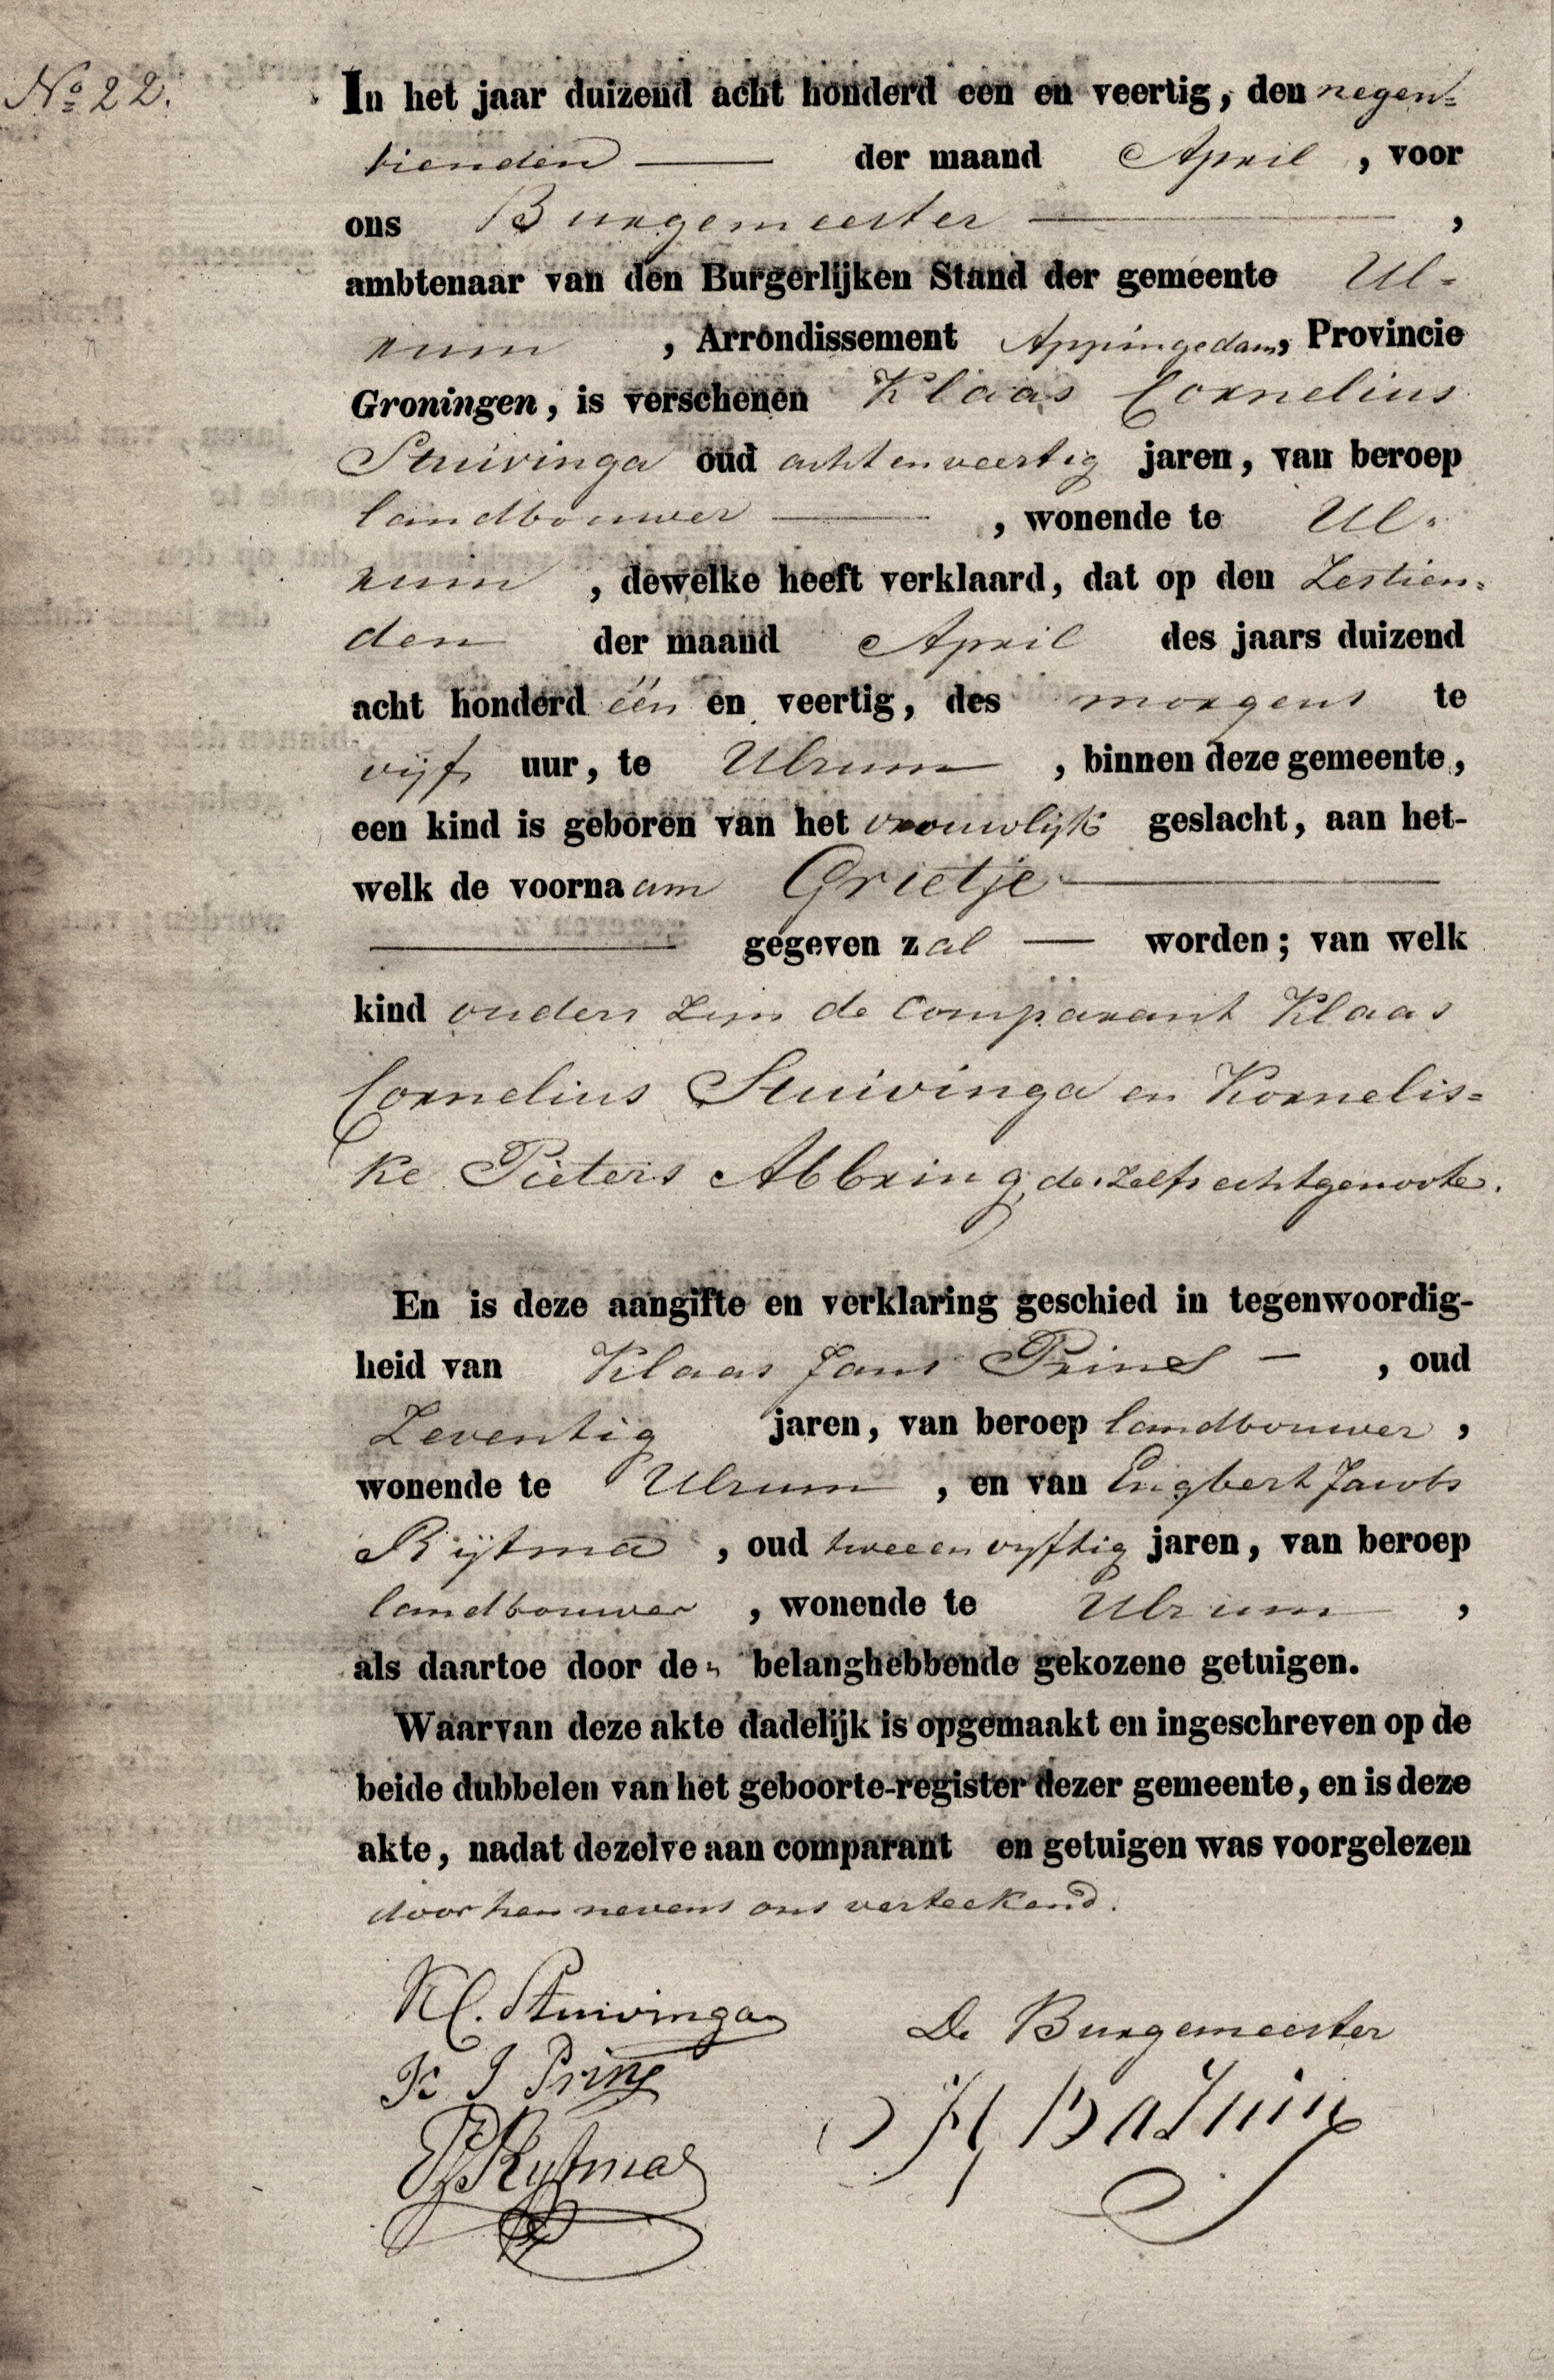 No 22.
In het jaar duizend acht honderd een en veertig, den negen=
tienden der maand April, voor
ons Burgemeester,
ambtenaar van den Burgerlijken Stand der gemeente Ul=
rum, Arrondissement Appingedam, Provincie
Groningen, is verschenen Klaas Cornelius
Stuivinga oud acht en veertig jaren, van beroep
landbouwer, wonende te Ul=
rum, dewelke heeft verklaard, dat op den Zestien=
den der maand April des jaars duizend
acht honderd één en veertig, des morgens te
vijf uur, te Ulrum, binnen deze gemeente,
een kind is geboren van het vrouwlijk geslacht, aan het-
welk de voornaam Grietje
gegeven zal worden; van welk
kind ouders zijn de Comparant Klaas
Cornelius Stuivinga en Kornelis=
ke Pieters Abbring, deszelfs echtgenoote.
En is deze aangifte en verklaring geschied in tegenwoordig-
heid van Klaas Jans Prins, oud
Zeventig jaren, van beroep landbouwer,
wonende te Ulrum, en van Engbert Jacobs
Rijtma, oud twee en vyftig jaren, van beroep
landbouwer, wonende te Ulrum,
als daartoe door de belanghebbende gekozene getuigen.
Waarvan deze akte dadelijk is opgemaakt en ingeschreven op de
beide dubbelen van het geboorte-register dezer gemeente, en is deze
akte, nadat dezelve aan comparant en getuigen was voorgelezen
door hen nevens ons verteekend.
K C. Stuivinga
De Burgemeester
K J Prins
EJ Rytma